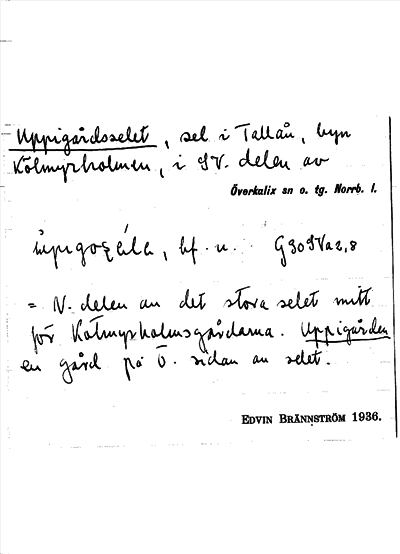 Uppigårdsselet, sel i Tallån, byn
Kölmyrholmen, i SV. delen av
Överkalix sn o. tg. Norrb. l.
bf. n. G30SVa2,8
= N. delen av det stora selet mitt
för Kölmyrholmsgårdarna. Uppigården
en gård på Ö. sidan av selet.
EDVIN BRÄNNSTRÖM 1936.